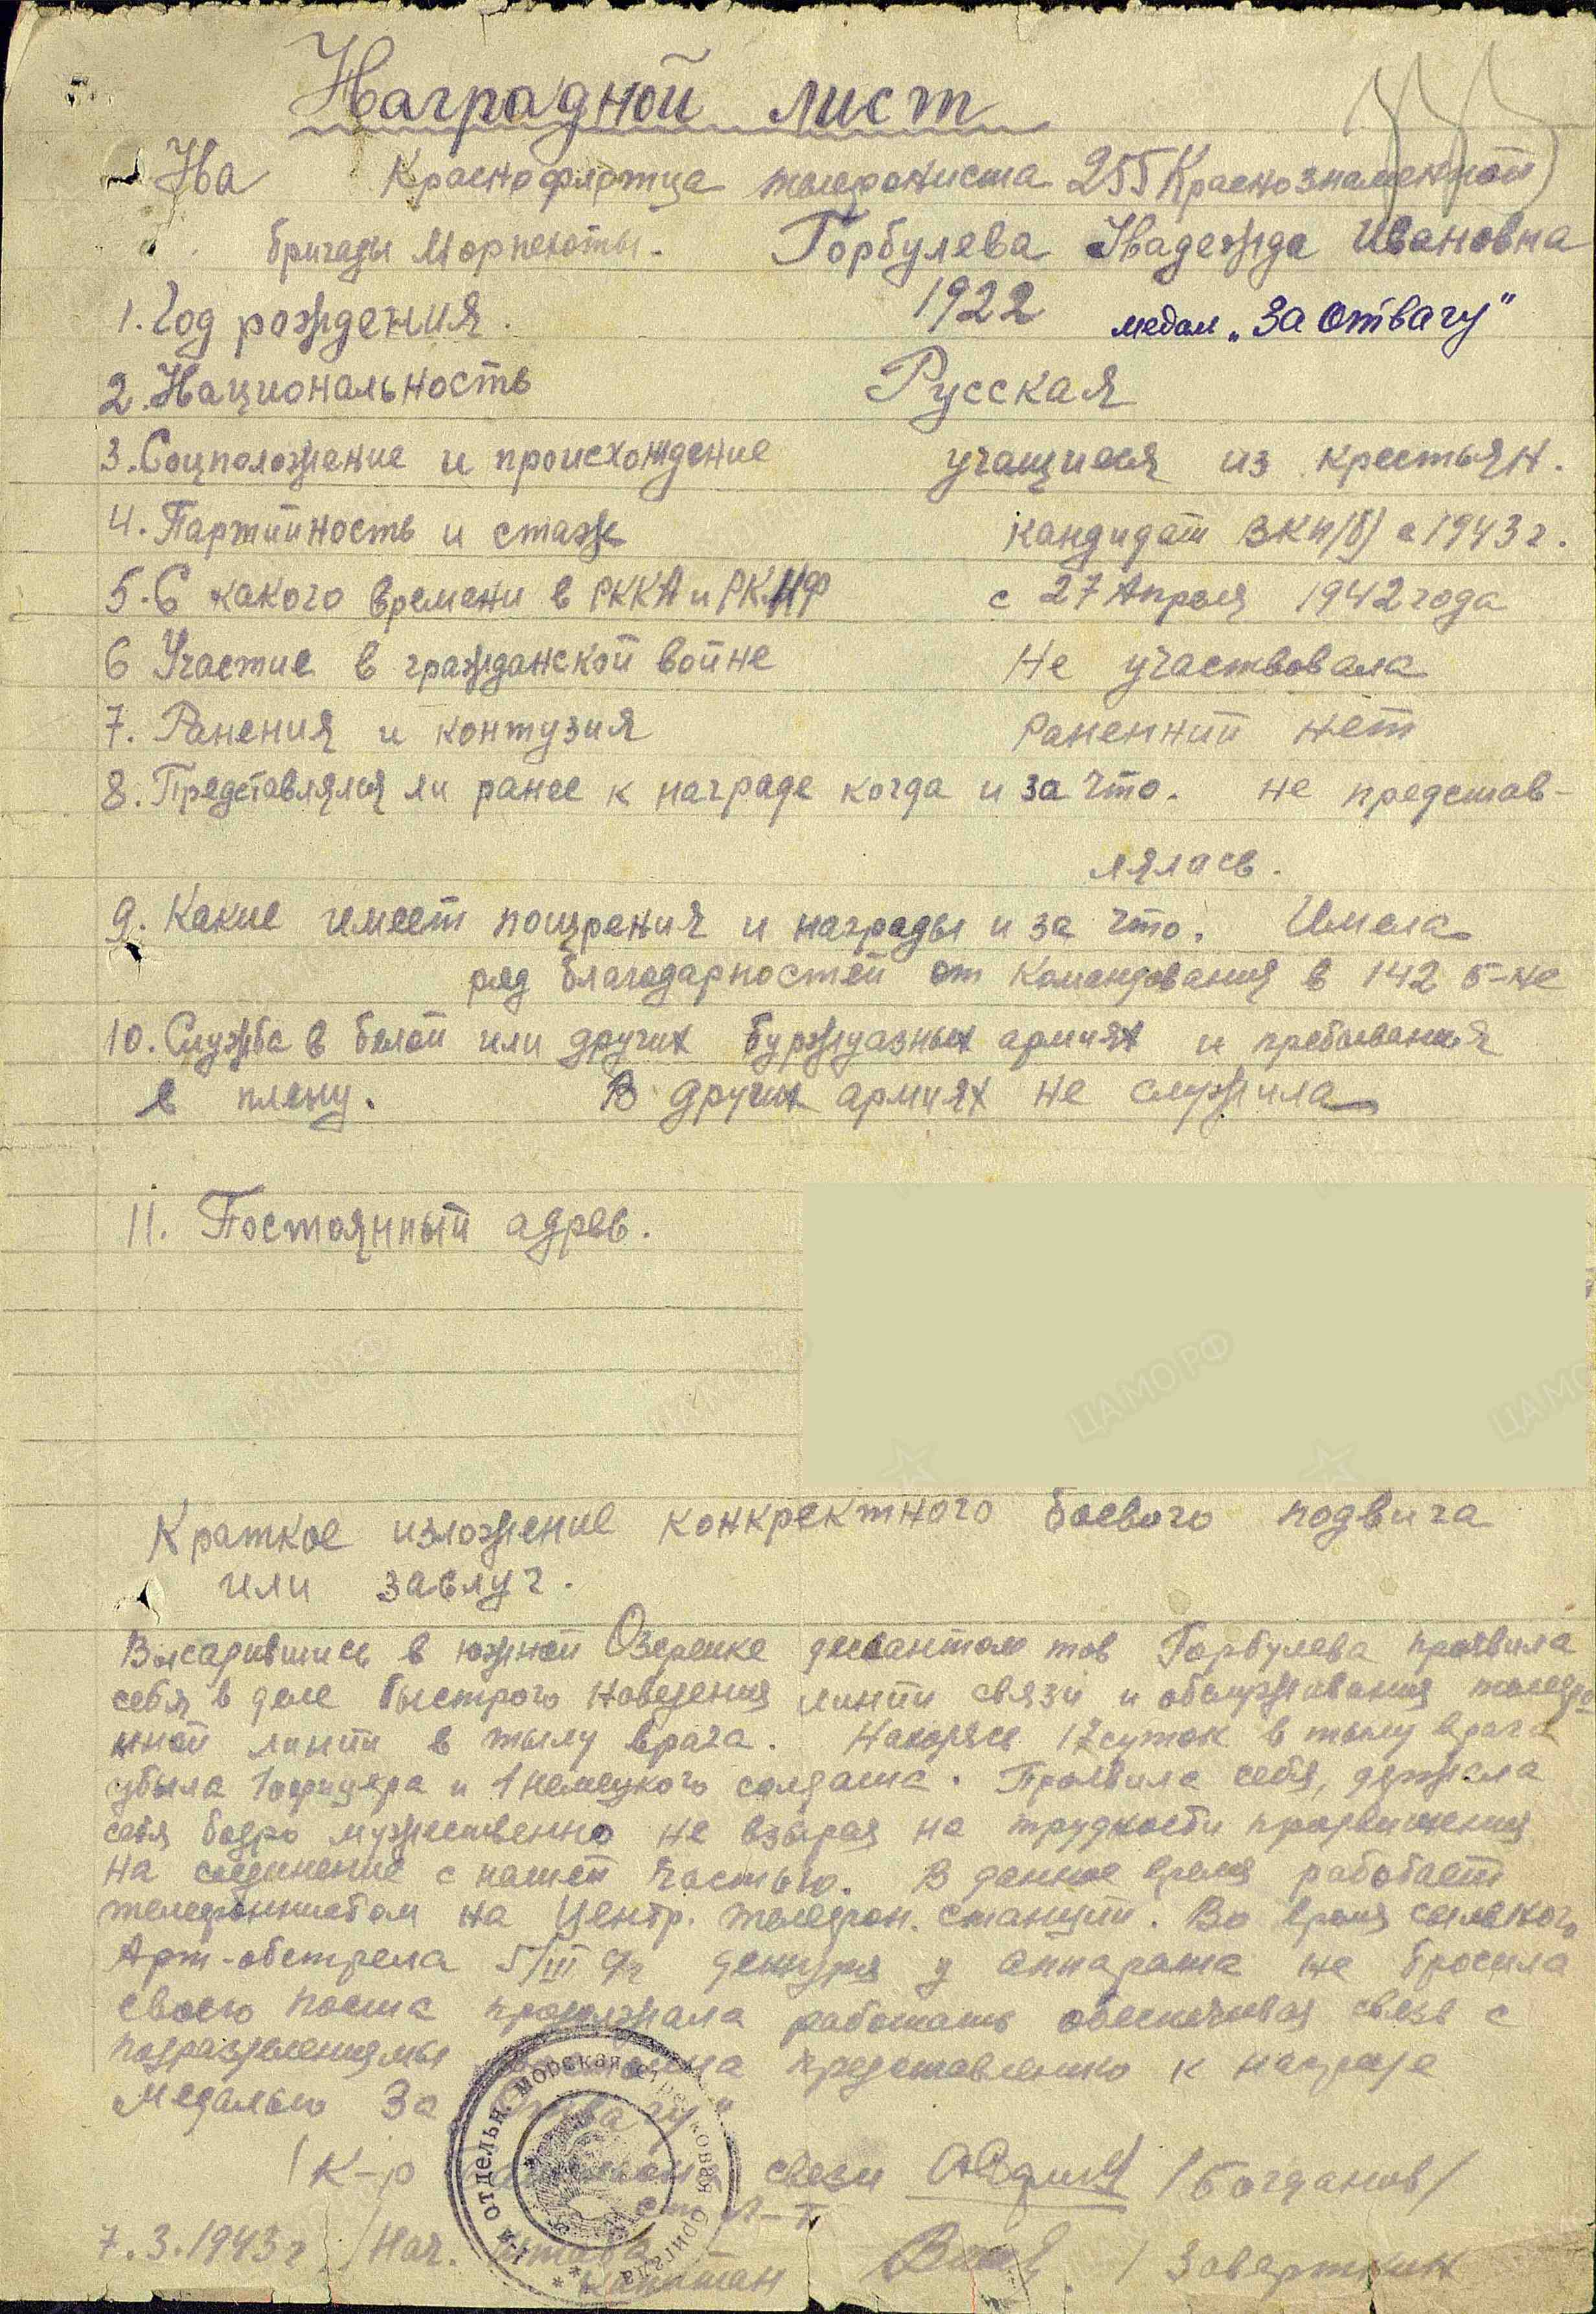 Наградной лист
На Краснофлотца телефониста 255 Краснознаменной
бригады Морпехоты. Горбулева Надежда Ивановна
1. Год рождения. 1922 медал „За Отвагу"
2. Национальность Русская
3. Соцположение и происхождение учащиеся из крестьян.
4. Партийность и стаж кандидат ВКП/б/ с 1943 г.
5. С какого времени в РККА и РКМФ с 27 Апреля 1942 года
6 Участие в гражданской войне Не участвовала
7. Ранения и контузия Ранений нет
8. Представлялся ли ранее к награде когда и за что. не представ-
лялась.
9. Какие имеет пощрения и награды и за что. Имела
ряд благодарностей от Командования в 142 б-не
10. Служба в белой или других буржуазных армиях и пребывания
в плену. В других армиях не служила
11. Постоянный адрес.
Краткое изложение конкректного боевого подвига
или заслуг.
Высадившись в южной Озерейке десантом тов Горбулева проявила
себя в деле быстрого наведения линии связи и обслуживания телефо
нной линии в тылу врага. Находясь 12 суток в тылу врага
убила 1 офицера и 1 немецкого солдата. Проявила себя, держала
себя бодро мужественно не взирая на трудности продвижения
на соединение с нашей частью. В данное время работает
телефоннистом на Центр. телефон. станции. Во время сильного
Арт-обстрела 5/III дежуря у аппарата не бросила
своего поста продолжала работать обеспечивая связь с
подразделениями достойна представлению к награде
Медалью За „Отвагу"
/К-р связи /Богданов/
ст Л-т
7.3.1943 г /Нач. штаба
капитан / Заварткин
отдельн. морская стрелковая бригада
ЦАМО.РФ